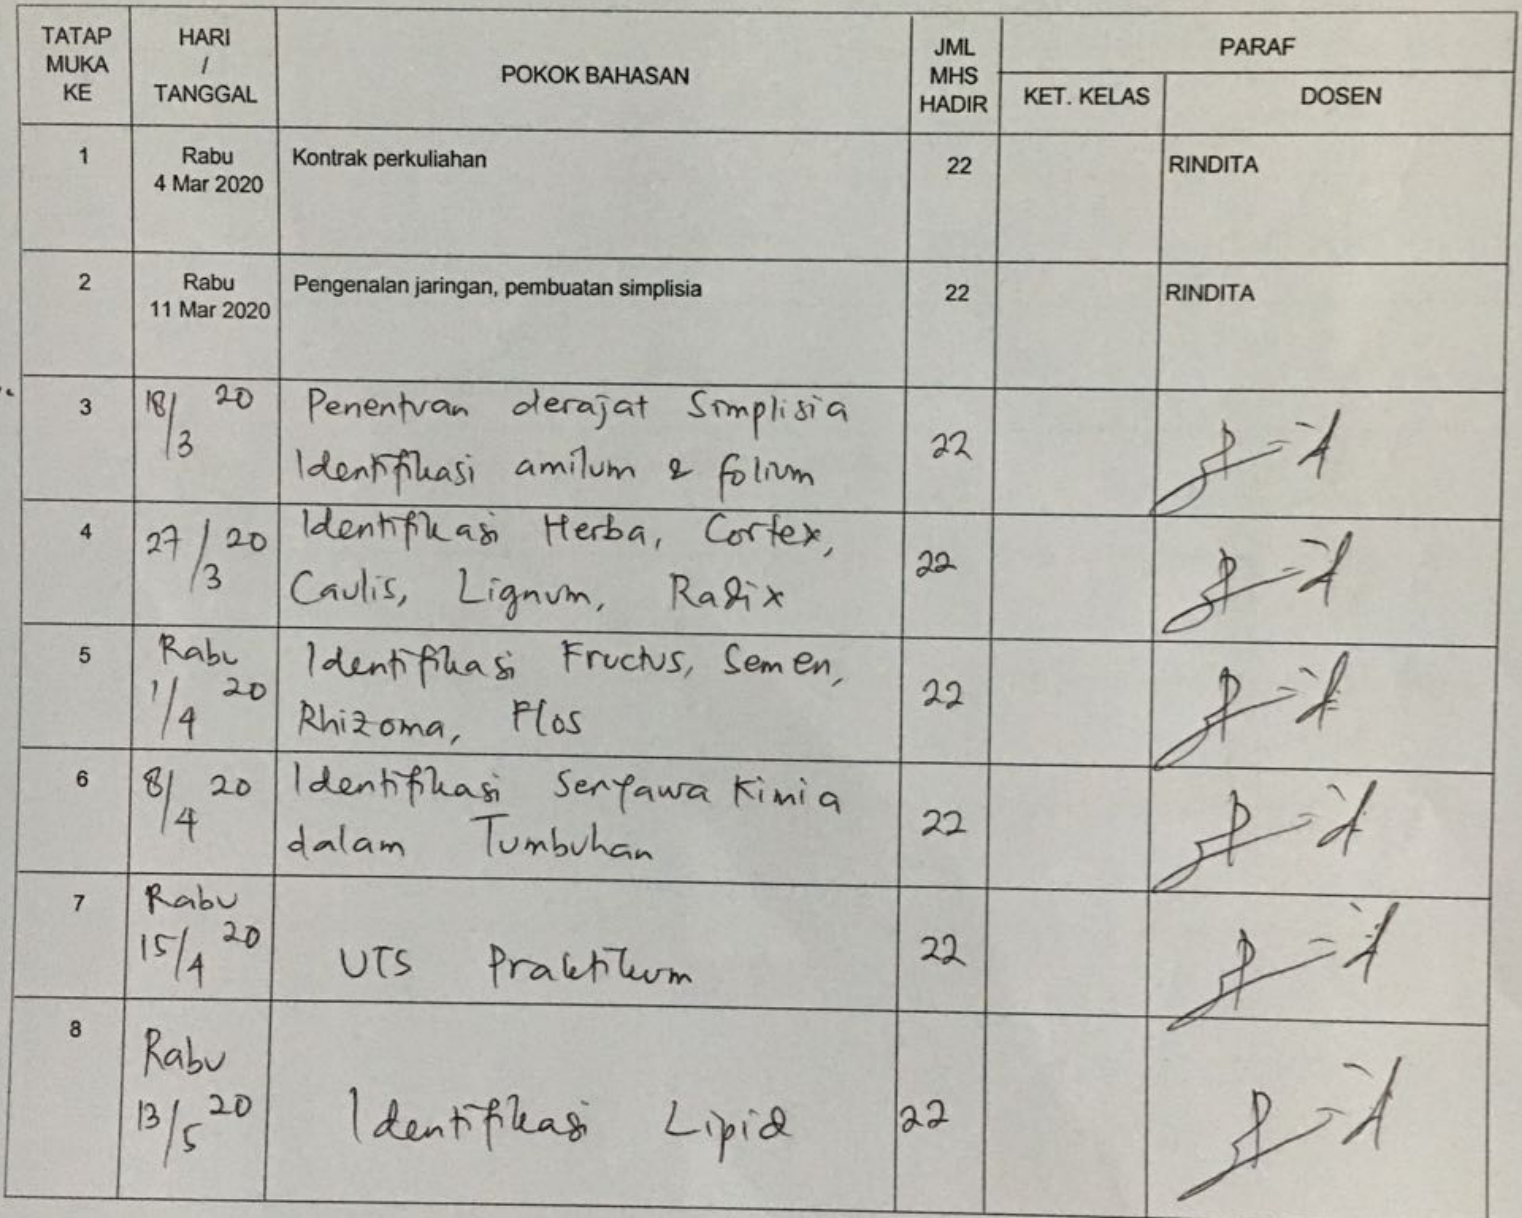 TATAP MUKA KE
HARI / TANGGAL
POKOK BAHASAN
JML MHS HADIR
PARAF
KET. KELAS
DOSEN
1
Rabu
4 Mar 2020
Kontrak perkuliahan
22
RINDITA
2
Rabu
11 Mar 2020
Pengenalan jaringan, pembuatan simplisia
22
RINDITA
3
18/3 20
Penentuan derajat Simplisia
Identifikasi amilum & folium
22
4
27/3 20
Identifikasi Herba, Cortex,
Caulis, Lignum, Radix
22
5
Rabu
1/4 20
Identifikasi Fructus, Semen,
Rhizoma, Flos
22
6
8/4 20
Identifikasi Senyawa Kimia
dalam Tumbuhan
22
7
Rabu
15/4 20
UTS Praktikum
22
8
Rabu
13/5 20
Identifikasi Lipid
22